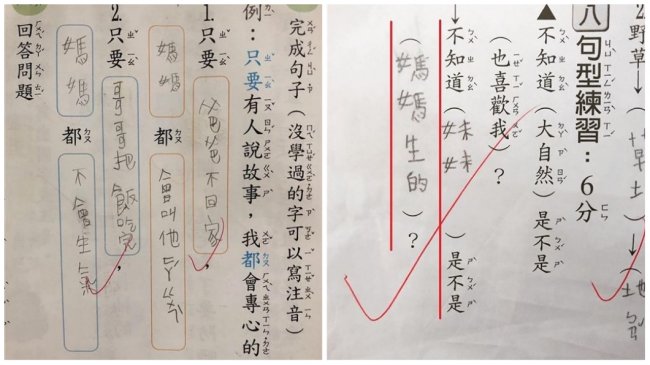 完成句子（沒學過的字可以寫注音）
例：只要有人說故事，我都會專心的
1.只要爸爸不回家，
媽媽都會叫他
2.只要哥哥把飯吃完，
媽媽都不會生氣
回答問題
2.野草→
八句型練習：6分
▲不知道（大自然）是不是
（也喜歡我）？
→不知道（妹妹）是不是
（媽媽生的）？